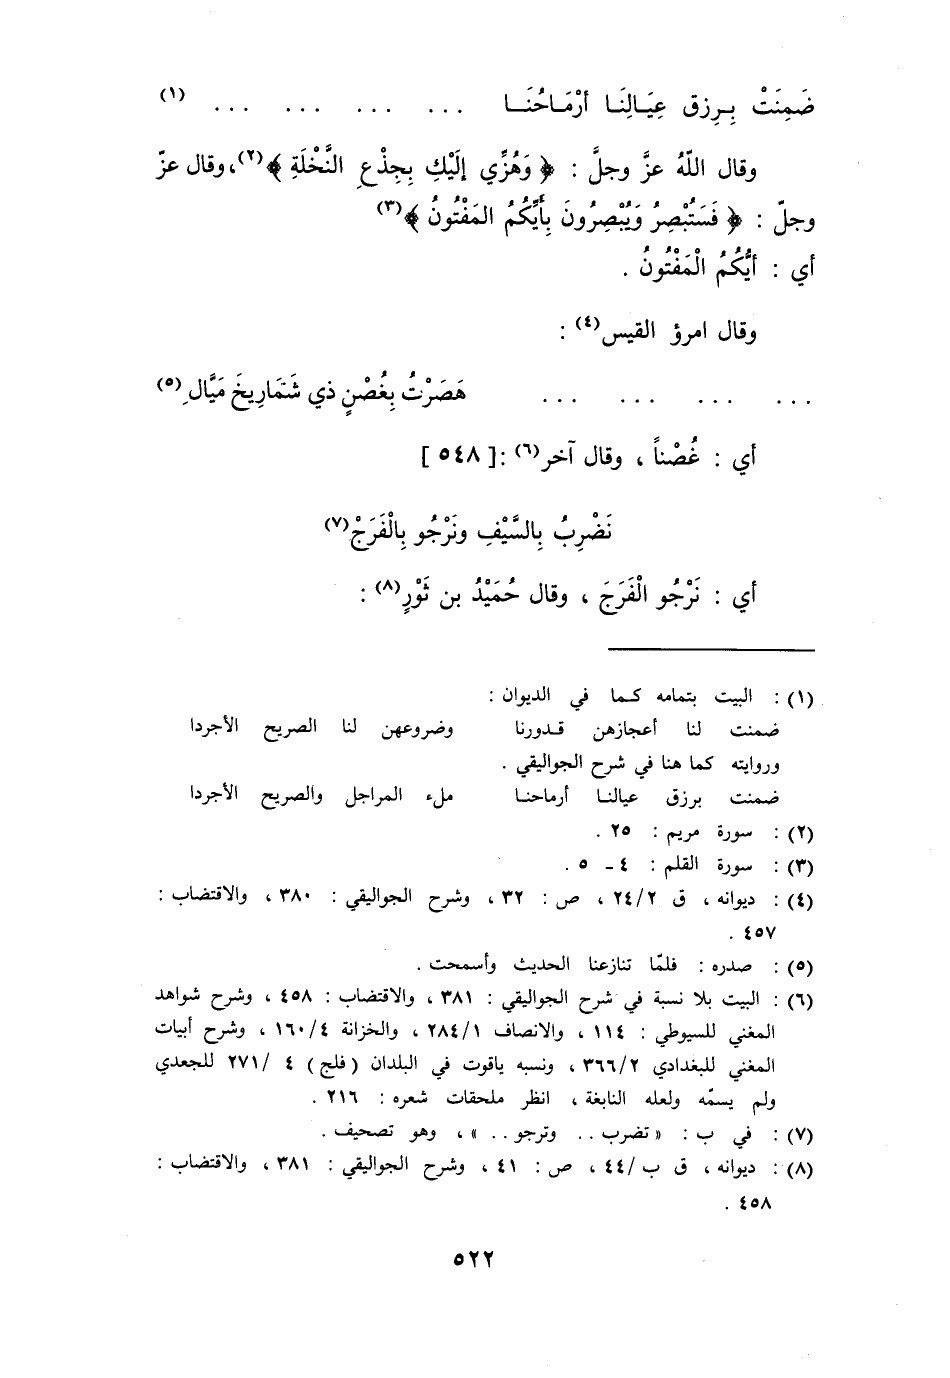 ضَمِنَتْ بِرِزقِ عِيَالِنَا أرْمَاحُنَا ... ... ... ... (١)
وقال اللّهُ عزَّ وجلَّ : ﴿ وَهُزِّي إلَيْكِ بِجِذْعِ النَّخْلَةِ ﴾(٢)، وقال عزّ
وجلّ : ﴿ فَسَتُبْصِرُ وَيُبْصِرُونَ بِأَيِّكُمُ المَفْتُونُ ﴾(٣)
أي : أيُّكُمُ الْمَفْتُونُ .
وقال امرؤ القيس(٤) :
... ... ... ... هَصَرْتُ بِغُصْنٍ ذي شَمَارِيخَ مَيَّالِ(٥)
أي : غُصْناً ، وقال آخر(٦) :[ ٥٤٨ ]
نَضْرِبُ بِالسَّيْفِ ونَرْجُو بِالْفَرَجْ(٧)
أي : نَرْجُو الْفَرَجَ ، وقال حُمَيْدُ بن ثَوْرٍ(٨) :
(١) : البيت بتمامه كما في الديوان :
ضمنت لنا أعجازهن قدورنا وضروعهن لنا الصريح الأجردا
وروايته كما هنا في شرح الجواليقي .
ضمنت برزق عيالنا أرماحنا ملء المراجل والصريح الأجردا
(٢) : سورة مريم : ٢٥ .
(٣) : سورة القلم : ٤ - ٥ .
(٤) : ديوانه ، ق ٢٤/٢ ، ص : ٣٢ ، وشرح الجواليقي : ٣٨٠ ، والاقتضاب :
٤٥٧ .
(٥) : صدره : فلمّا تنازعنا الحديث وأسمحت .
(٦) : البيت بلا نسبة في شرح الجواليقي : ٣٨١ ، والاقتضاب : ٤٥٨ ، وشرح شواهد
المغني للسيوطي : ١١٤ ، والانصاف ٢٨٤/١ ، والخزانة ١٦٠/٤ ، وشرح أبيات
المغني للبغدادي ٣٦٦/٢ ، ونسبه ياقوت في البلدان ( فلج ) ٤ /٢٧١ للجعدي
ولم يسمّه ولعله النابغة ، انظر ملحقات شعره : ٢١٦ .
(٧) : في ب : « تضرب .. وترجو .. » ، وهو تصحيف .
(٨) : ديوانه ، ق ب /٤٤ ، ص : ٤١ ، وشرح الجواليقي : ٣٨١ ، والاقتضاب :
٤٥٨ .
٥٢٢